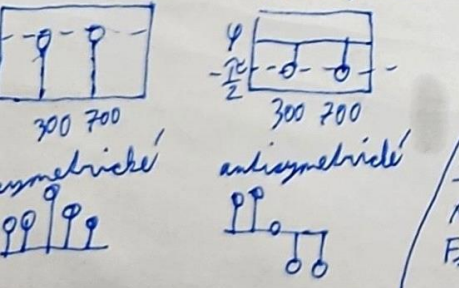 φ
-π/2
300 700
300 700
symetrické
antisymetrické